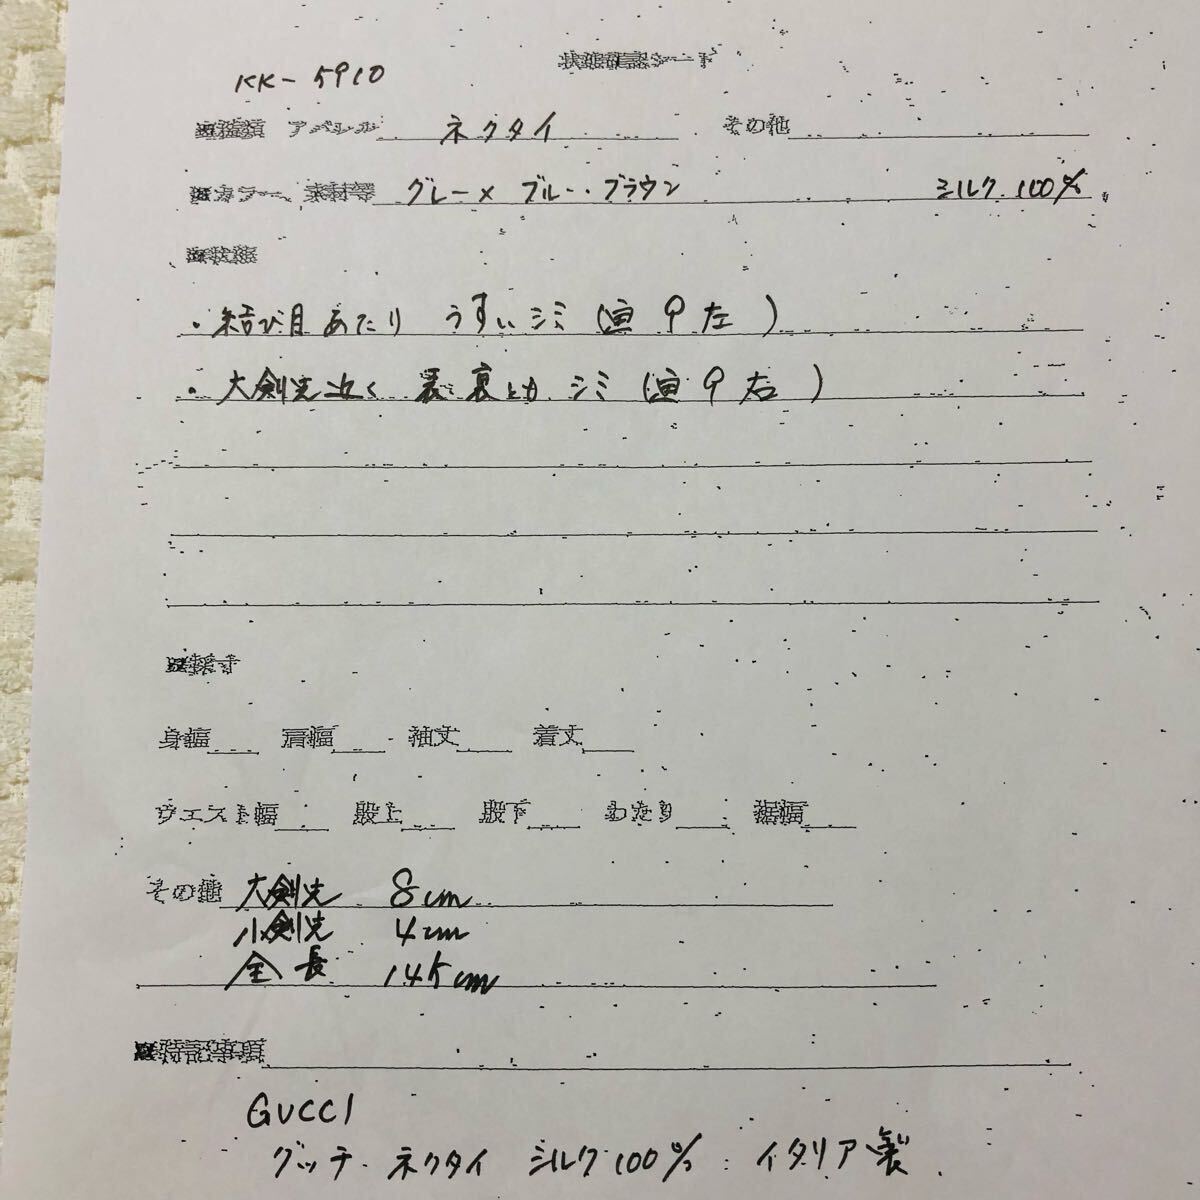 状態確認シート
KK-5910
■種類 アパレル ネクタイ その他
■カラー、素材等 グレー×ブルー・ブラウン シルク100%
■状態
・結び目あたり うすいシミ(画9左)
・大剣先近く 表裏とも シミ(画9右)
■採寸
身幅 肩幅 袖丈 着丈
ウエスト幅 股上 股下 わたり 裾幅
その他 大剣先 8cm
小剣先 4cm
全長 145cm
■特記事項
GUCCI
グッチ ネクタイ シルク100% イタリア製